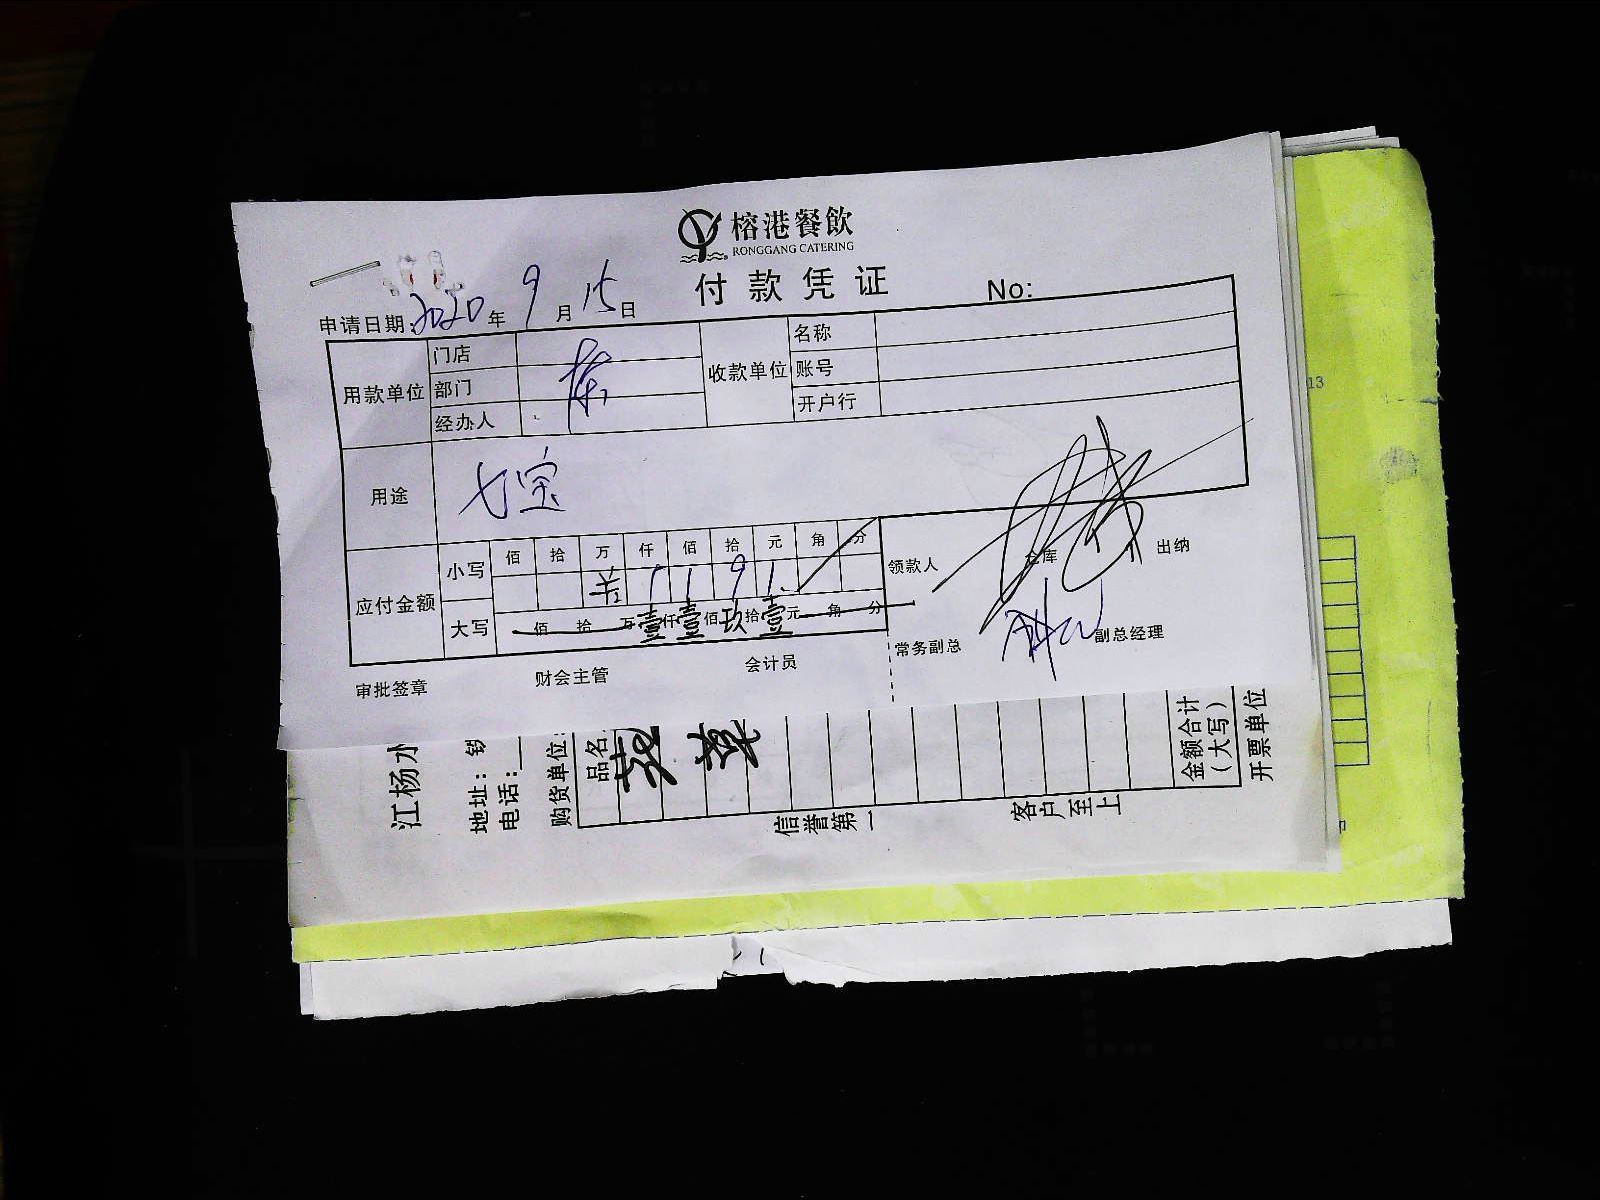 榕港餐飲
RONGGANG CATERING
付款凭证
No:
申请日期: 2020年9月15日
用款单位 门店 收款单位 名称
部门 账号
经办人 开户行
用途 七宝
应付金额 小写 佰 拾 万 仟 佰 拾 元 角 分
羊 1 1 9 1
大写 佰 拾 万 壹仟 壹佰 玖拾 壹元 角 分
领款人 仓库 出纳
常务副总 副总经理
审批签章 财会主管 会计员
13
江杨水
地址:
电话:
购货单位:
品名
信誉第一
客户至上
金额合计
(大写)
开票单位